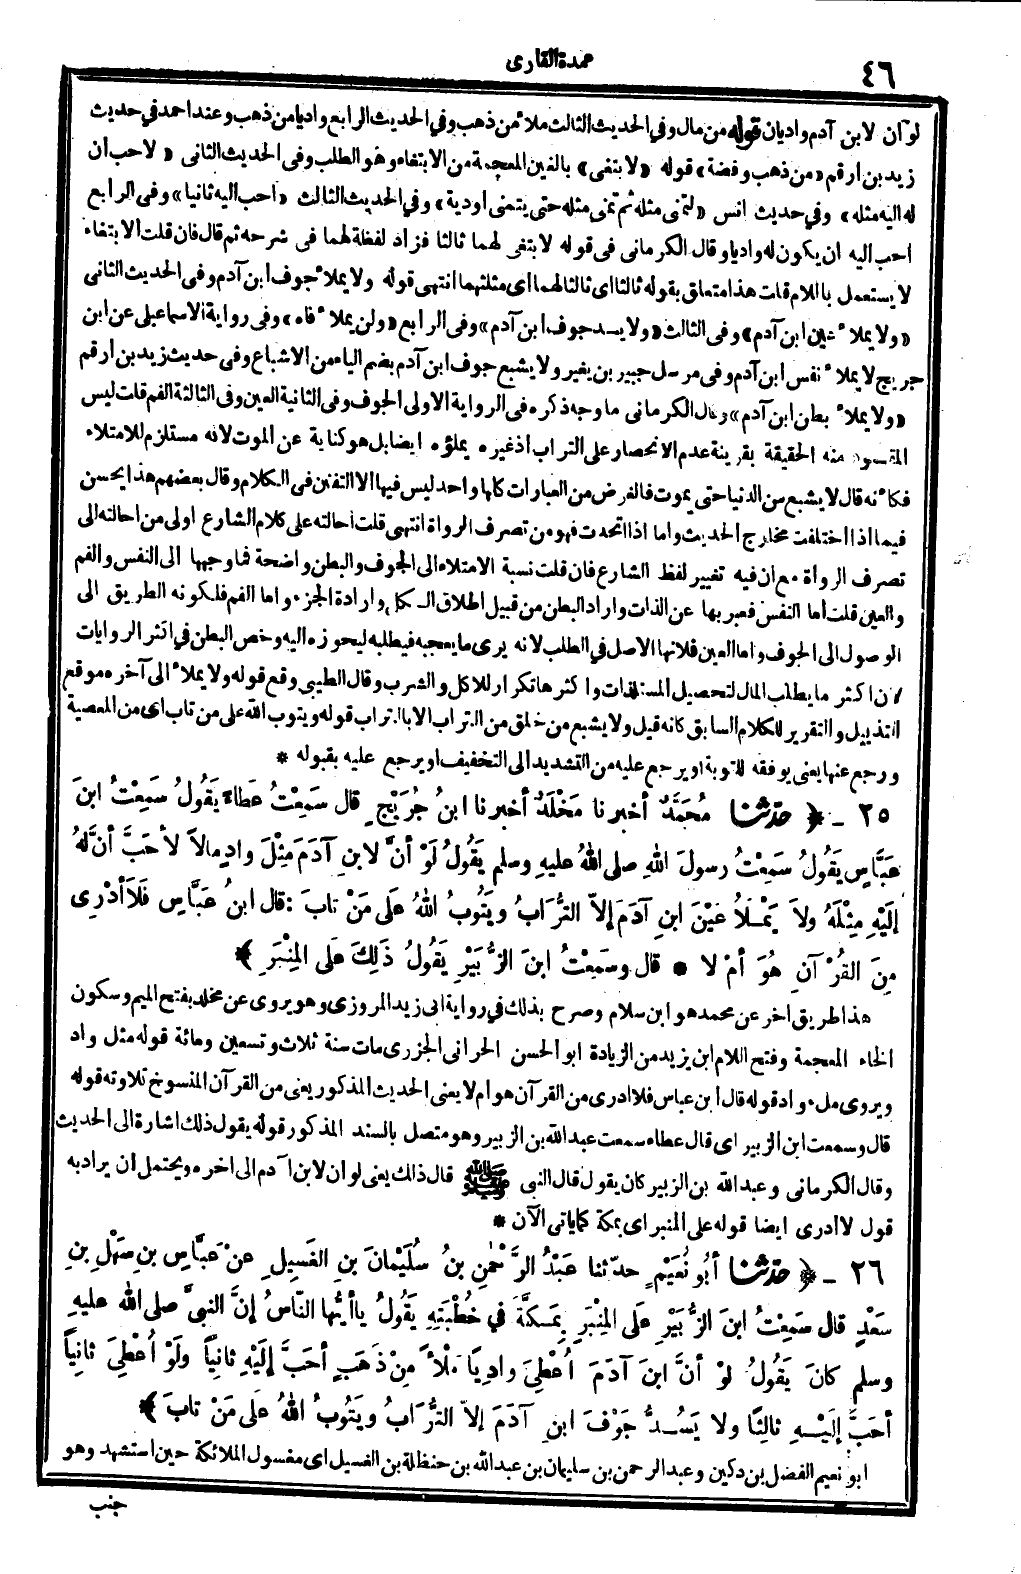 ٤٦
عمدة القارى
لو أن لابن آدم واديان قوله من مال وفي الحديث الثالث ملأ من ذهب وفي الحديث الرابع واديا من ذهب وعند احمد في حديث
زيد بن ارقم «من ذهب وفضة» قوله «لابتغى» بالغين المعجمة من الابتغاء وهو الطلب وفى الحديث الثانى «لاحب أن
له اليه مثله» وفي حديث انس «لتمنى مثله ثم تمنى مثله حتى يتمنى أودية» وفي الحديث الثالث «احب اليه ثانيا» وفى الرابع
احب اليه ان يكون له واديا وقال الكرمانى فى قوله لابتغى لهما ثالثا فزاد لفظة لهما فى شرحه ثم قال فان قلت الابتغاء
لا يستعمل باللام قلت هذا متعلق بقوله ثالثا اى ثالثا لهما اى مثلثهما انتهى قوله ولا يملأ جوف ابن آدم وفى الحديث الثانى
«ولا يملأ عين ابن آدم» وفى الثالث «ولا يسد جوف ابن آدم» وفى الرابع «ولن يملأ فاه» وفى رواية الاسماعيلى عن ابن
جريج لا يملأ نفس ابن آدم وفى مرسل جبير بن نفير ولا يشبع جوف ابن آدم بضم الياء من الاشباع وفى حديث زيد بن ارقم
«ولا يملأ بطن ابن آدم» وقال الكرمانى ما وجه ذكره فى الرواية الاولى الجوف وفى الثانية العين وفى الثالثة الفم قلت ليس
المقسود منه الحقيقة بقرينة عدم الانحصار على التراب اذ غيره يملؤه ايضا بل هو كناية عن الموت لانه مستلزم للامتلاء
فكأنه قال لا يشبع من الدنيا حتى يموت فالغرض من العبارات كلها واحد ليس فيها الا التفنن فى الكلام وقال بعضهم هذا يحسن
فيما اذا اختلفت مخارج الحديث واما اذا اتحدت فهو من تصرف الرواة انتهى قلت احالته على كلام الشارع اولى من احالته الى
تصرف الرواة مع ان فيه تغيير لفظ الشارع فان قلت نسبة الامتلاء الى الجوف والبطن واضحة فما وجهها الى النفس والفم
والعين قلت أما النفس فعبر بها عن الذات واراد البطن من قبيل اطلاق الكل وارادة الجزء واما الفم فلكونه الطريق الى
الوصول الى الجوف واما العين فلانها الاصل في الطلب لانه يرى ما يعجبه فيطلبه ليحوزه اليه وخص البطن في اكثر الروايات
لان اكثر ما يطلب المال لتحصيل المستلذات واكثرها تكرار للاكل والشرب وقال الطيبى وقع قوله ولا يملأ الى آخره موقع
التذييل والتقرير للكلام السابق كانه قيل ولا يشبع من خلق من التراب الا بالتراب قوله ويتوب الله على من تاب اى من المعصية
ورجع عنها يعنى يوفقه للتوبة او يرجع عليه من التشديد الى التخفيف او يرجع عليه بقبوله *
٢٥ - ﴿ حَدَّثنا مُحَمَّدٌ أخبرنا مَخْلَدٌ أخبرنا ابنُ جُرَيْجٍ قال سَمِعْتُ عَطاءً يَقُولُ سَمِعْتُ ابنَ
عَبَّاسٍ يَقُولُ سَمِعْتُ رسولَ اللهِ صلى اللهُ عليهِ وسلم يَقُولُ لَوْ أنَّ لابنِ آدَمَ مِثْلَ وادٍ مالاً لأَحَبَّ أنَّ لهُ
إلَيْهِ مِثْلَهُ ولاَ يَمْلأُ عَيْنَ ابنِ آدَمَ إلاَّ التُّرَابُ ويَتُوبُ اللهُ على مَنْ تابَ : قال ابنُ عَبَّاسٍ فَلاَ أدْرِى
مِنَ القُرْآنِ هُوَ أمْ لا * قال وسَمِعْتُ ابنَ الزُّبَيْرِ يَقُولُ ذَلِكَ عَلَى المِنْبَرِ ﴾
هذا طريق اخر عن محمد هو ابن سلام وصرح بذلك في رواية ابى زيد المروزى وهو يروى عن مخلد بفتح الميم وسكون
الخاء المعجمة وفتح اللام ابن يزيد من الزيادة ابو الحسن الحرانى الجزرى مات سنة ثلاث وتسعين ومائة قوله مثل واد
ويروى ملء واد قوله قال ابن عباس فلا ادرى من القرآن هو ام لا يعنى الحديث المذكور يعنى من القرآن المنسوخ تلاوته قوله
قال وسمعت ابن الزبير اى قال عطاء سمعت عبد الله بن الزبير وهو متصل بالسند المذكور قوله يقول ذلك اشارة الى الحديث
وقال الكرمانى وعبد الله بن الزبير كان يقول قال النبى ﷺ قال ذلك يعنى لو ان لابن آدم الى اخره ويحتمل أن يراد به
قول لا أدرى ايضا قوله على المنبر اى بمكة كما ياتى الآن *
٢٦ - ﴿ حَدَّثنا أبُو نُعَيْمٍ حدّثنا عَبْدُ الرَّحْمٰنِ بنُ سُلَيْمانَ بنِ الغَسِيلِ عنْ عَبَّاسِ بنِ سَهْلِ بنِ
سَعْدٍ قال سَمِعْتُ ابنَ الزُّبَيْرِ عَلَى المِنْبَرِ بِمَكَّةَ في خُطْبَتِهِ يَقُولُ يا أيُّها النَّاسُ إنَّ النبىَّ صلى الله عليهِ
وسلم كانَ يَقُولُ لوْ أنَّ ابنَ آدَمَ أُعْطِىَ وادِيًا مَلْأً مِنْ ذَهَبٍ أحَبَّ إلَيْهِ ثانِياً ولَوْ أُعْطِىَ ثانِياً
أحَبَّ إلَيْهِ ثالِثًا ولا يَسُدُّ جَوْفَ ابنِ آدَمَ إلاَّ التُّرَابُ ويَتُوبُ اللهُ عَلَى مَنْ تابَ ﴾
ابو نعيم الفضل بن دكين وعبد الرحمن بن سليمان بن عبد الله بن حنظلة بن الغسيل اى مغسول الملائكة حين استشهد وهو
جنب